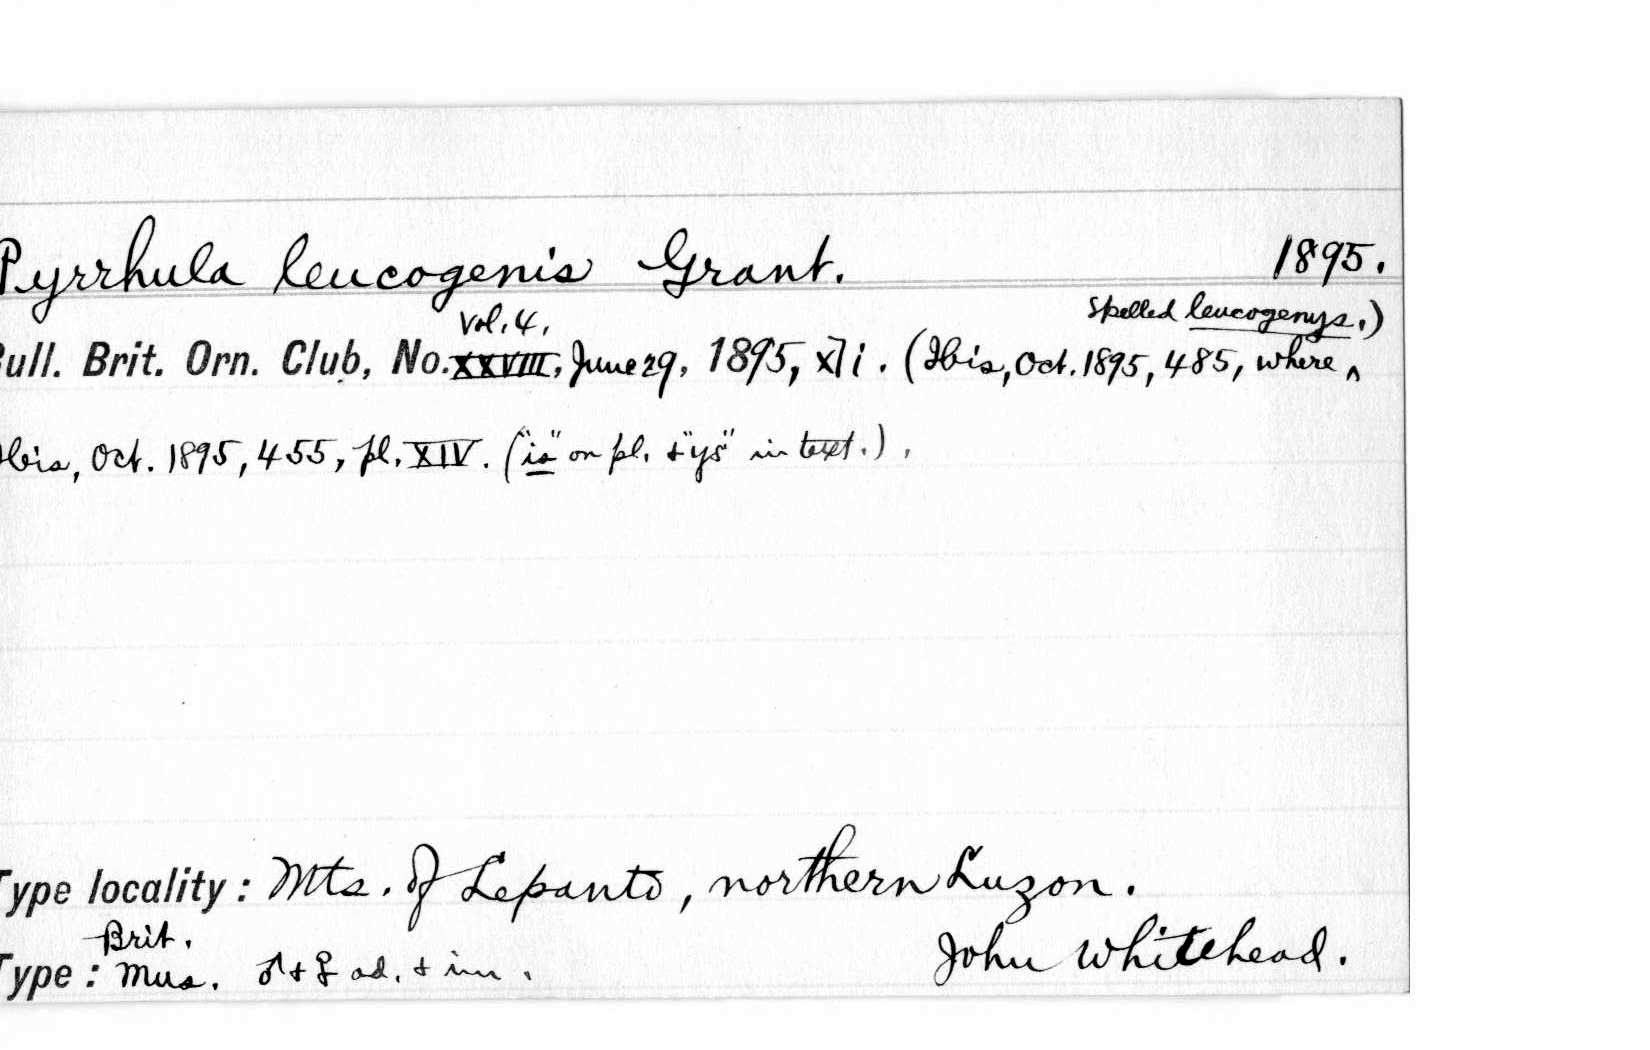 Pyrrhula leucogenis Grant. 1895.
Vol. 4. spelled leucogenys.)
Bull. Brit. Orn. Club, No. XXVIII, June 29, 1895, xli. (Ibis, Oct. 1895, 485, where ^
Ibis, Oct. 1895, 455, pl. XIV. ("is" on pl. + "ys" in text.).
Type locality: Mts. of Lepanto, northern Luzon.
Brit.
Type: Mus. ♂ + ♀ ad. + im. John Whitehead.